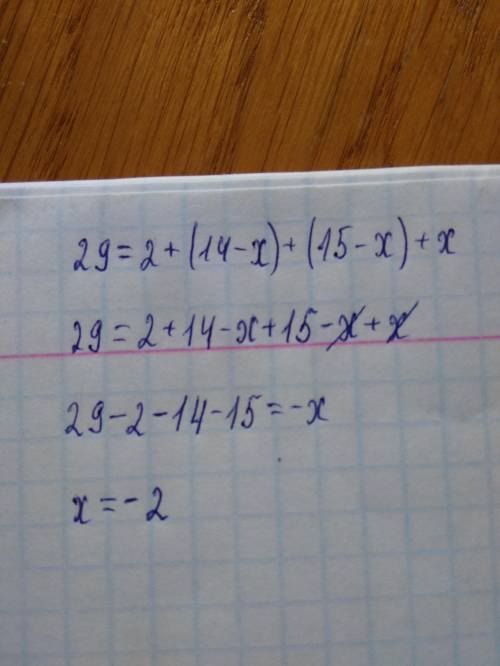 29=2+(14-x)+(15-x)+x
29=2+14-x+15-x+x
29-2-14-15=-x
x=-2